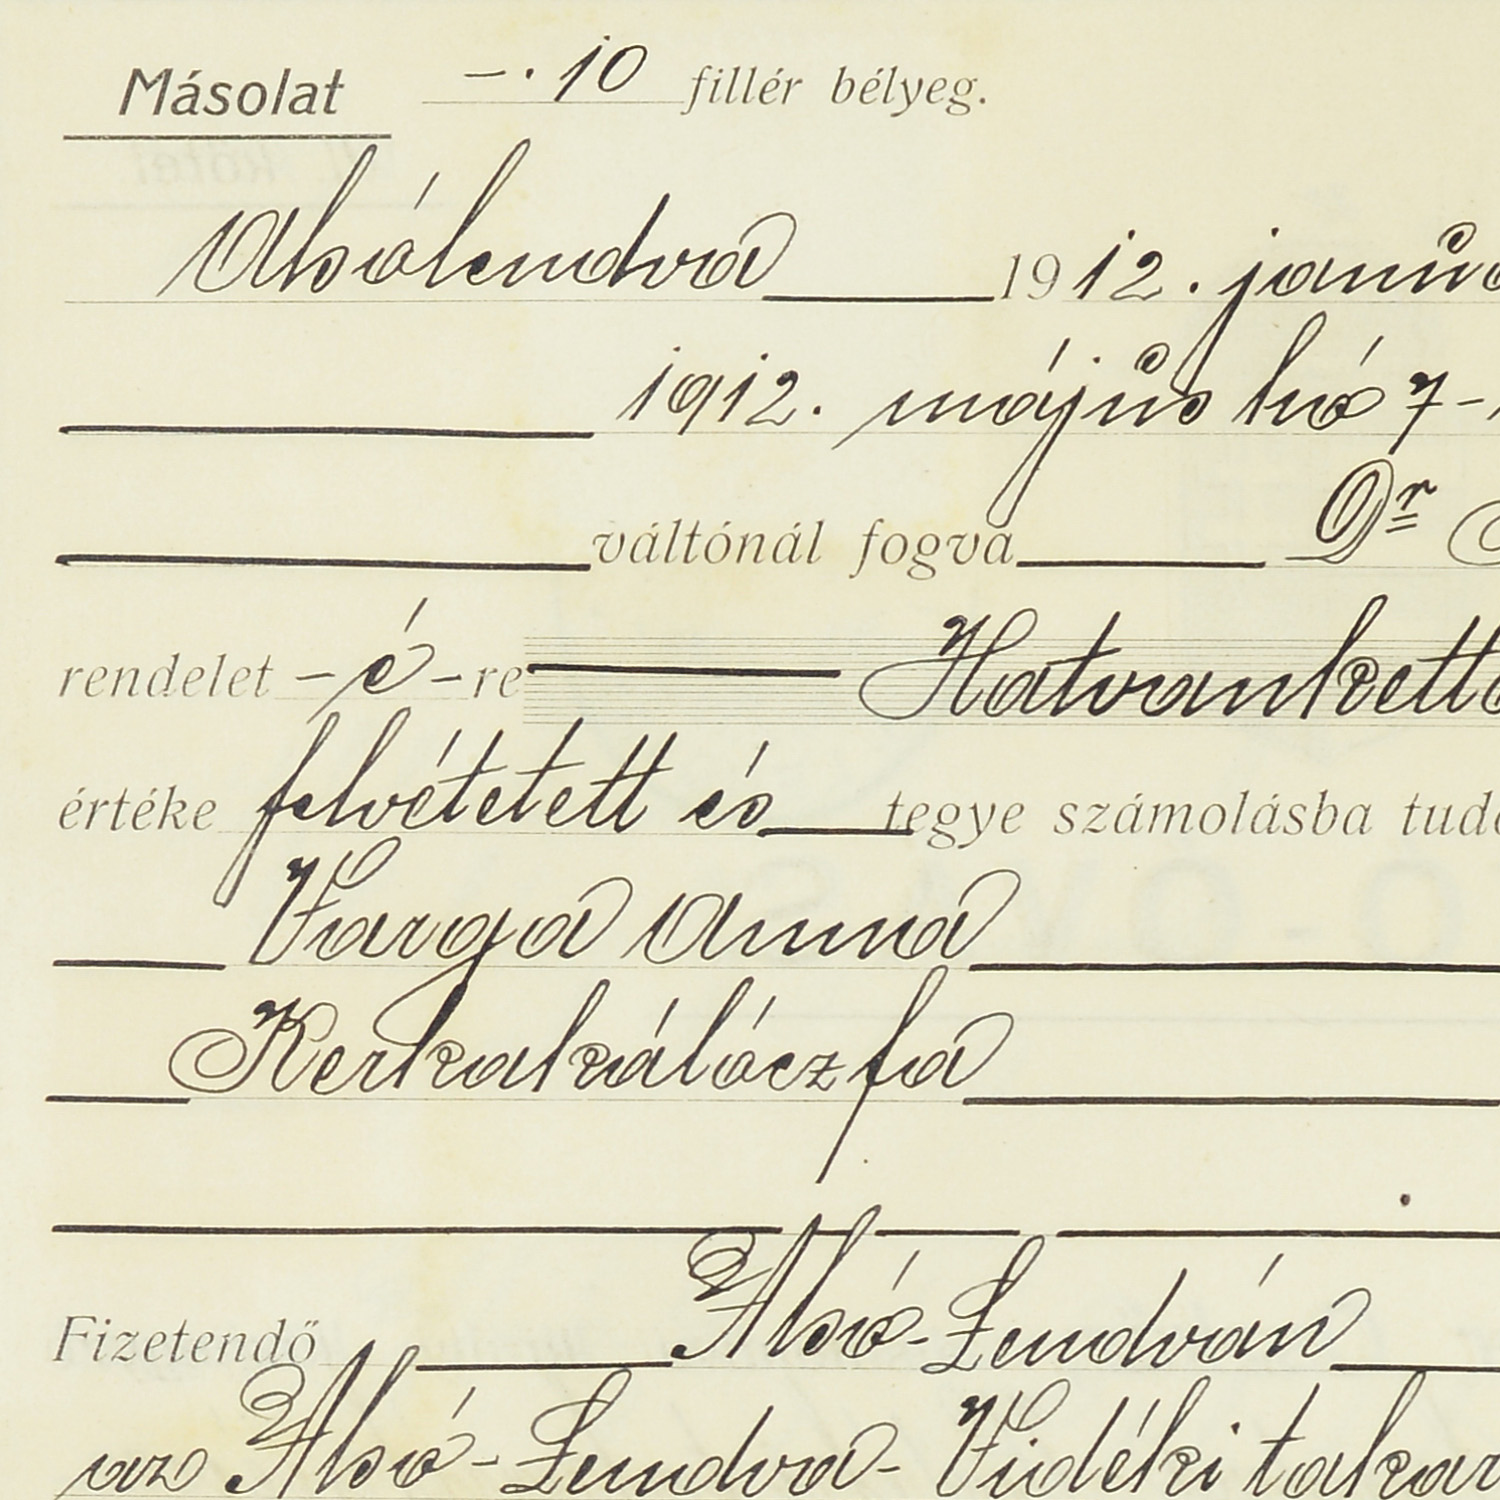 Másolat -.10 fillér bélyeg.
Alsólendva 1912. janua
1912. május hó 7-
váltónál fogva Dr
rendelet -é- re Hatvankett
értéke felvétetett és tegye számolásba tud
Varga Anna
Kerkakálóczfa
Fizetendő Alsó-Lendván
az Alsó-Lendva-Vidéki takar